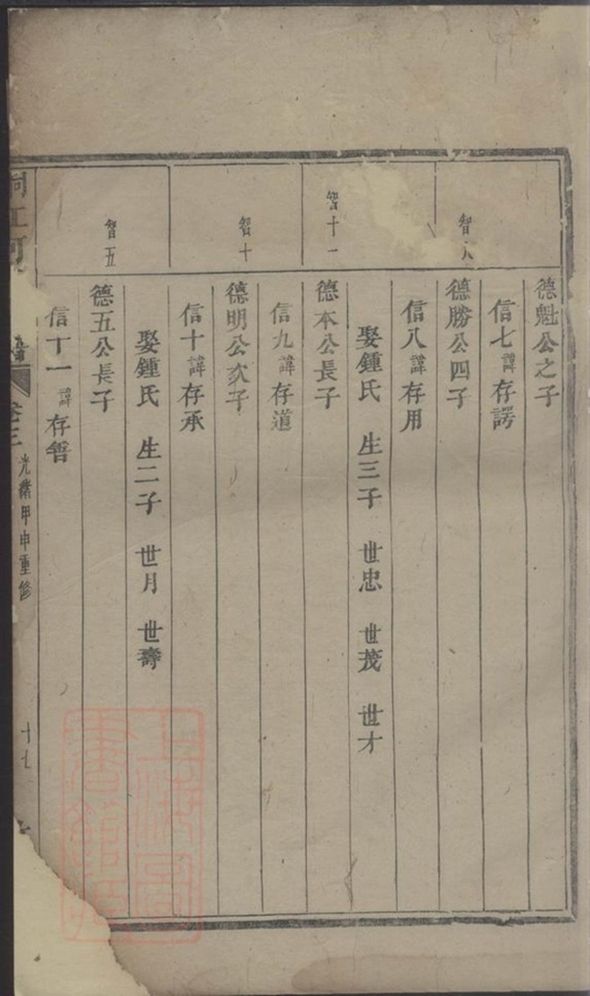 德魁公之子
信七諱存諤
智六
德勝公四子
信八諱存用
娶鍾氏 生三子 世忠 世茂 世才
智十一
德本公長子
信九諱存道
智十
德明公次子
信十諱存承
娶鍾氏 生二子 世月 世壽
智五
德五公長子
信十一諱存智
桐江
卷三 光緒甲申重修
十七
上海圖書館藏